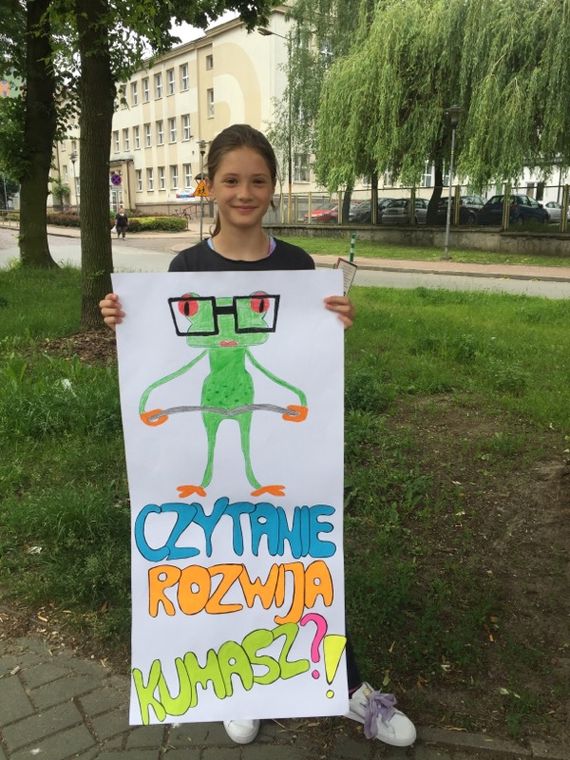 CZYTANIE
ROZWIJA
KUMASZ?!